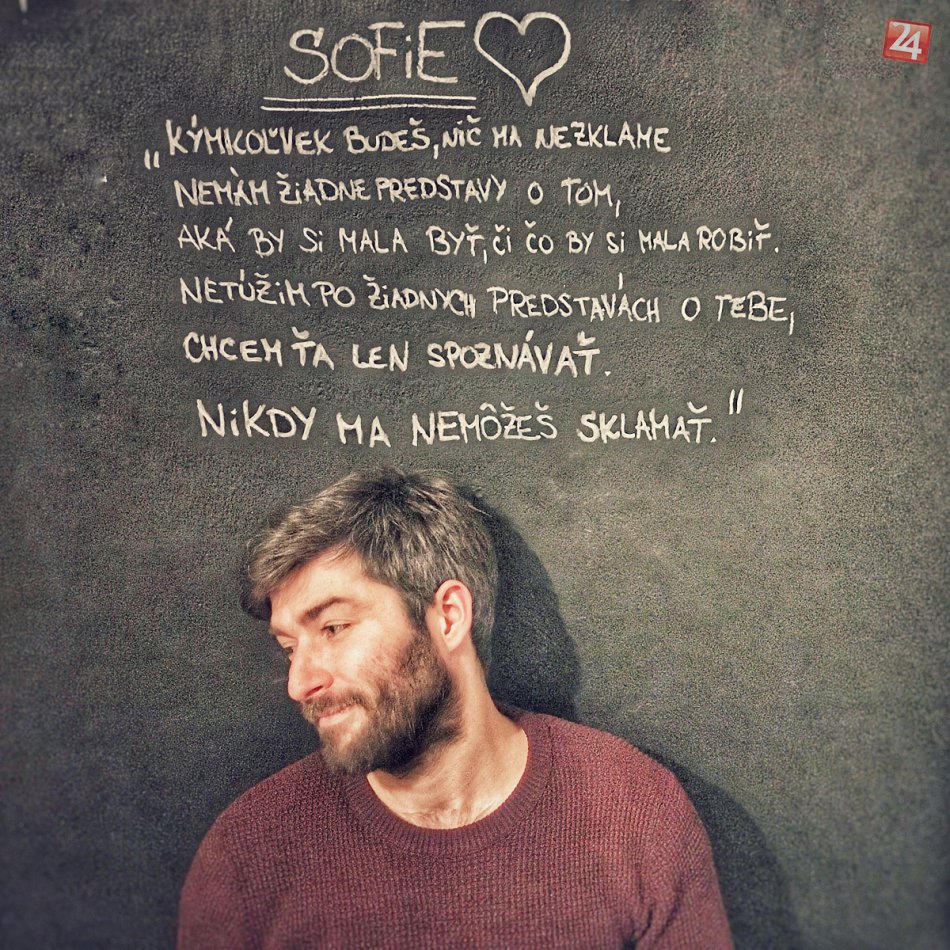 SOFiE
„KÝMKOĽVEK BUDEŠ, NIČ MA NEZKLAME
NEMÁM ŽiADNE PREDSTAVY O TOM,
AKÁ BY Si MALA BYŤ, či čO BY Si MALA ROBiŤ.
NETÚŽiM PO ŽiADNYCH PREDSTAVÁCH O TEBE,
CHCEM ŤA LEN SPOZNÁVAŤ.
NiKDY MA NEMÔŽEŠ SKLAMAŤ."
24